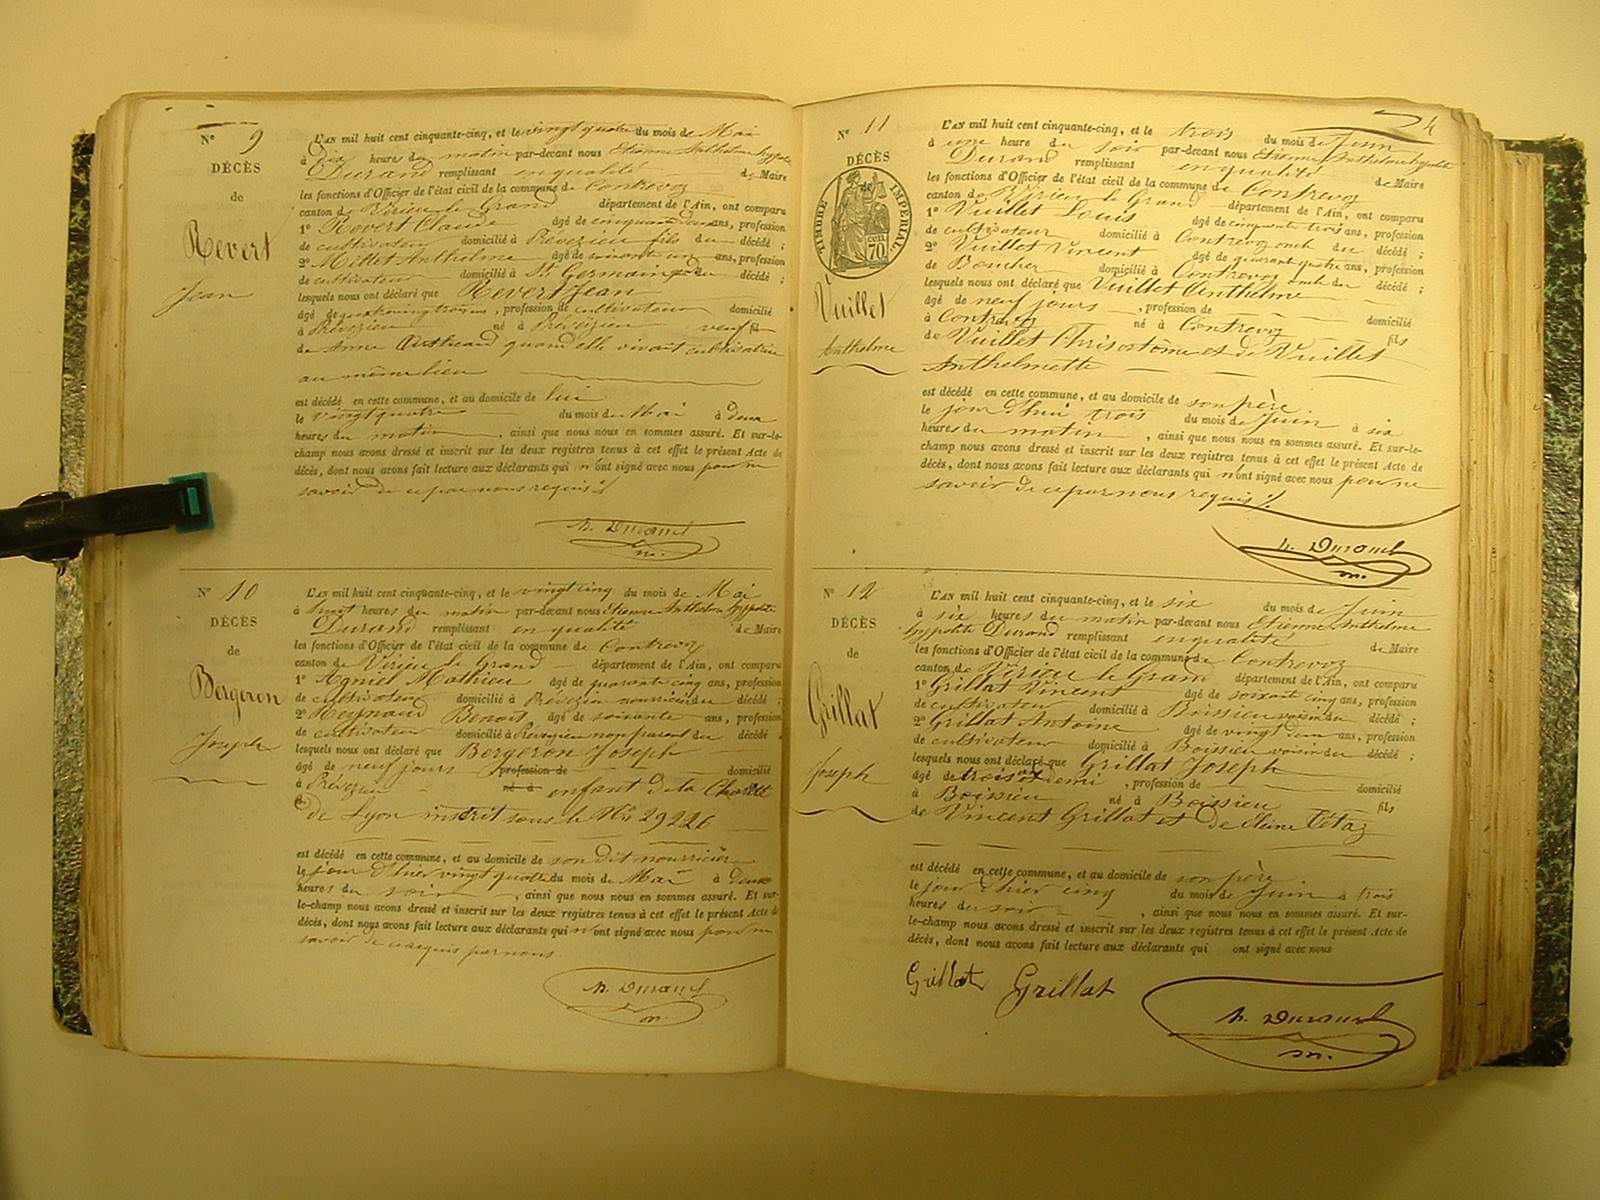 N° 9
DÉCÈS
de
Revert
Jean
L'AN mil huit cent cinquante-cinq, et le vingt quatre du mois de Mai
à dix heures du matin par-devant nous Etienne Anthelme hyppolite
Durand remplissant en qualité de Maire
les fonctions d'Officier de l'état civil de la commune de Contrevoz
canton de Virieu le Grand département de l'Ain, ont comparu
1° Revert Claude âgé de cinquante deux ans, profession
de cultivateur domicilié à Prévezieu fils du décédé ;
2° Millet Anthelme âgé de soixante un ans, profession
de cultivateur domicilié à St Germain du décédé ;
lesquels nous ont déclaré que Revert Jean
âgé de quatre vingt trois ans, profession de cultivateur domicilié
à Prévezieu né à Prévezieu veuf
de Anne quand elle vivait cultivatrice
au même lieu
est décédé en cette commune, et au domicile de lui
le vingt quatre du mois de Mai à deux
heures du matin, ainsi que nous nous en sommes assuré. Et sur-le-
champ nous avons dressé et inscrit sur les deux registres tenus à cet effet le présent Acte de
décès, dont nous avons fait lecture aux déclarants qui n'ont signé avec nous pour ne
savoir de ce par nous requis
h. Durand
m.
N° 10
DÉCÈS
de
Bergeron
Joseph
L'AN mil huit cent cinquante-cinq, et le vingt cinq du mois de Mai
à huit heures du matin par-devant nous Etienne Anthelme hyppolite
Durand remplissant en qualité de Maire
les fonctions d'Officier de l'état civil de la commune de Contrevoz
canton de Virieu le Grand département de l'Ain, ont comparu
1° Agniel Mathieu âgé de quarante cinq ans, profession
de cultivateur domicilié à Prévezieu nourricier du décédé ;
2° Reynaud Benoit âgé de soixante ans, profession
de cultivateur domicilié à Prévezieu non parent du décédé ;
lesquels nous ont déclaré que Bergeron Joseph
âgé de neuf jours profession de domicilié
à Prévezieu né à enfant de la Charité
de Lyon inscrit sous le No 29226
est décédé en cette commune, et au domicile de son dit nourricier
le jour d'hier vingt quatre du mois de Mai à deux
heures du soir, ainsi que nous nous en sommes assuré. Et sur-
le-champ nous avons dressé et inscrit sur les deux registres tenus à cet effet le présent Acte de
décès, dont nous avons fait lecture aux déclarants qui n'ont signé avec nous pour ne
savoir de ce requis par nous
h. Durand
m.
4
N° 11
DÉCÈS
de
TIMBRE IMPÉRIAL
70
Vuillet
Anthelme
L'AN mil huit cent cinquante-cinq, et le trois du mois de Juin
à une heure du soir par-devant nous Etienne Anthelme hyppolite
Durand remplissant en qualité de Maire
les fonctions d'Officier de l'état civil de la commune de Contrevoz
canton de Virieu le Grand département de l'Ain, ont comparu
1° Vuillet Louis âgé de cinquante trois ans, profession
de cultivateur domicilié à Contrevoz oncle du décédé ;
2° Vuillet Vincent âgé de quarante quatre ans, profession
de Boucher domicilié à Contrevoz oncle du décédé ;
lesquels nous ont déclaré que Vuillet Anthelme
âgé de neuf jours, profession de domicilié
à Contrevoz né à Contrevoz fils
de Vuillet Chrisostôme et de Vuillet
Anthelmette
est décédé en cette commune, et au domicile de son père
le jour d'hui trois du mois de Juin à six
heures du matin, ainsi que nous nous en sommes assuré. Et sur-le-
champ nous avons dressé et inscrit sur les deux registres tenus à cet effet le présent Acte de
décès, dont nous avons fait lecture aux déclarants qui n'ont signé avec nous pour ne
savoir de ce par nous requis
h. Durand
m.
N° 12
DÉCÈS
de
Grillat
Joseph
L'AN mil huit cent cinquante-cinq, et le six du mois de Juin
à six heures du matin par-devant nous Etienne Anthelme
hyppolite Durand remplissant en qualité de Maire
les fonctions d'Officier de l'état civil de la commune de Contrevoz
canton de Virieu le Grand département de l'Ain, ont comparu
1° Grillat Vincent âgé de soixante cinq ans, profession
de cultivateur domicilié à Boissieu voisin du décédé ;
2° Grillat Antoine âgé de vingt deux ans, profession
de cultivateur domicilié à Boissieu voisin du décédé ;
lesquels nous ont déclaré que Grillat Joseph
âgé de trois et demi, profession de domicilié
à Boissieu né à Boissieu fils
de Vincent Grillat et de Eleine Tétaz
est décédé en cette commune, et au domicile de son père
le jour d'hier cinq du mois de Juin à trois
heures du soir, ainsi que nous nous en sommes assuré. Et sur-
le-champ nous avons dressé et inscrit sur les deux registres tenus à cet effet le présent Acte de
décès, dont nous avons fait lecture aux déclarants qui ont signé avec nous
Grillat Grillat
h. Durand
m.